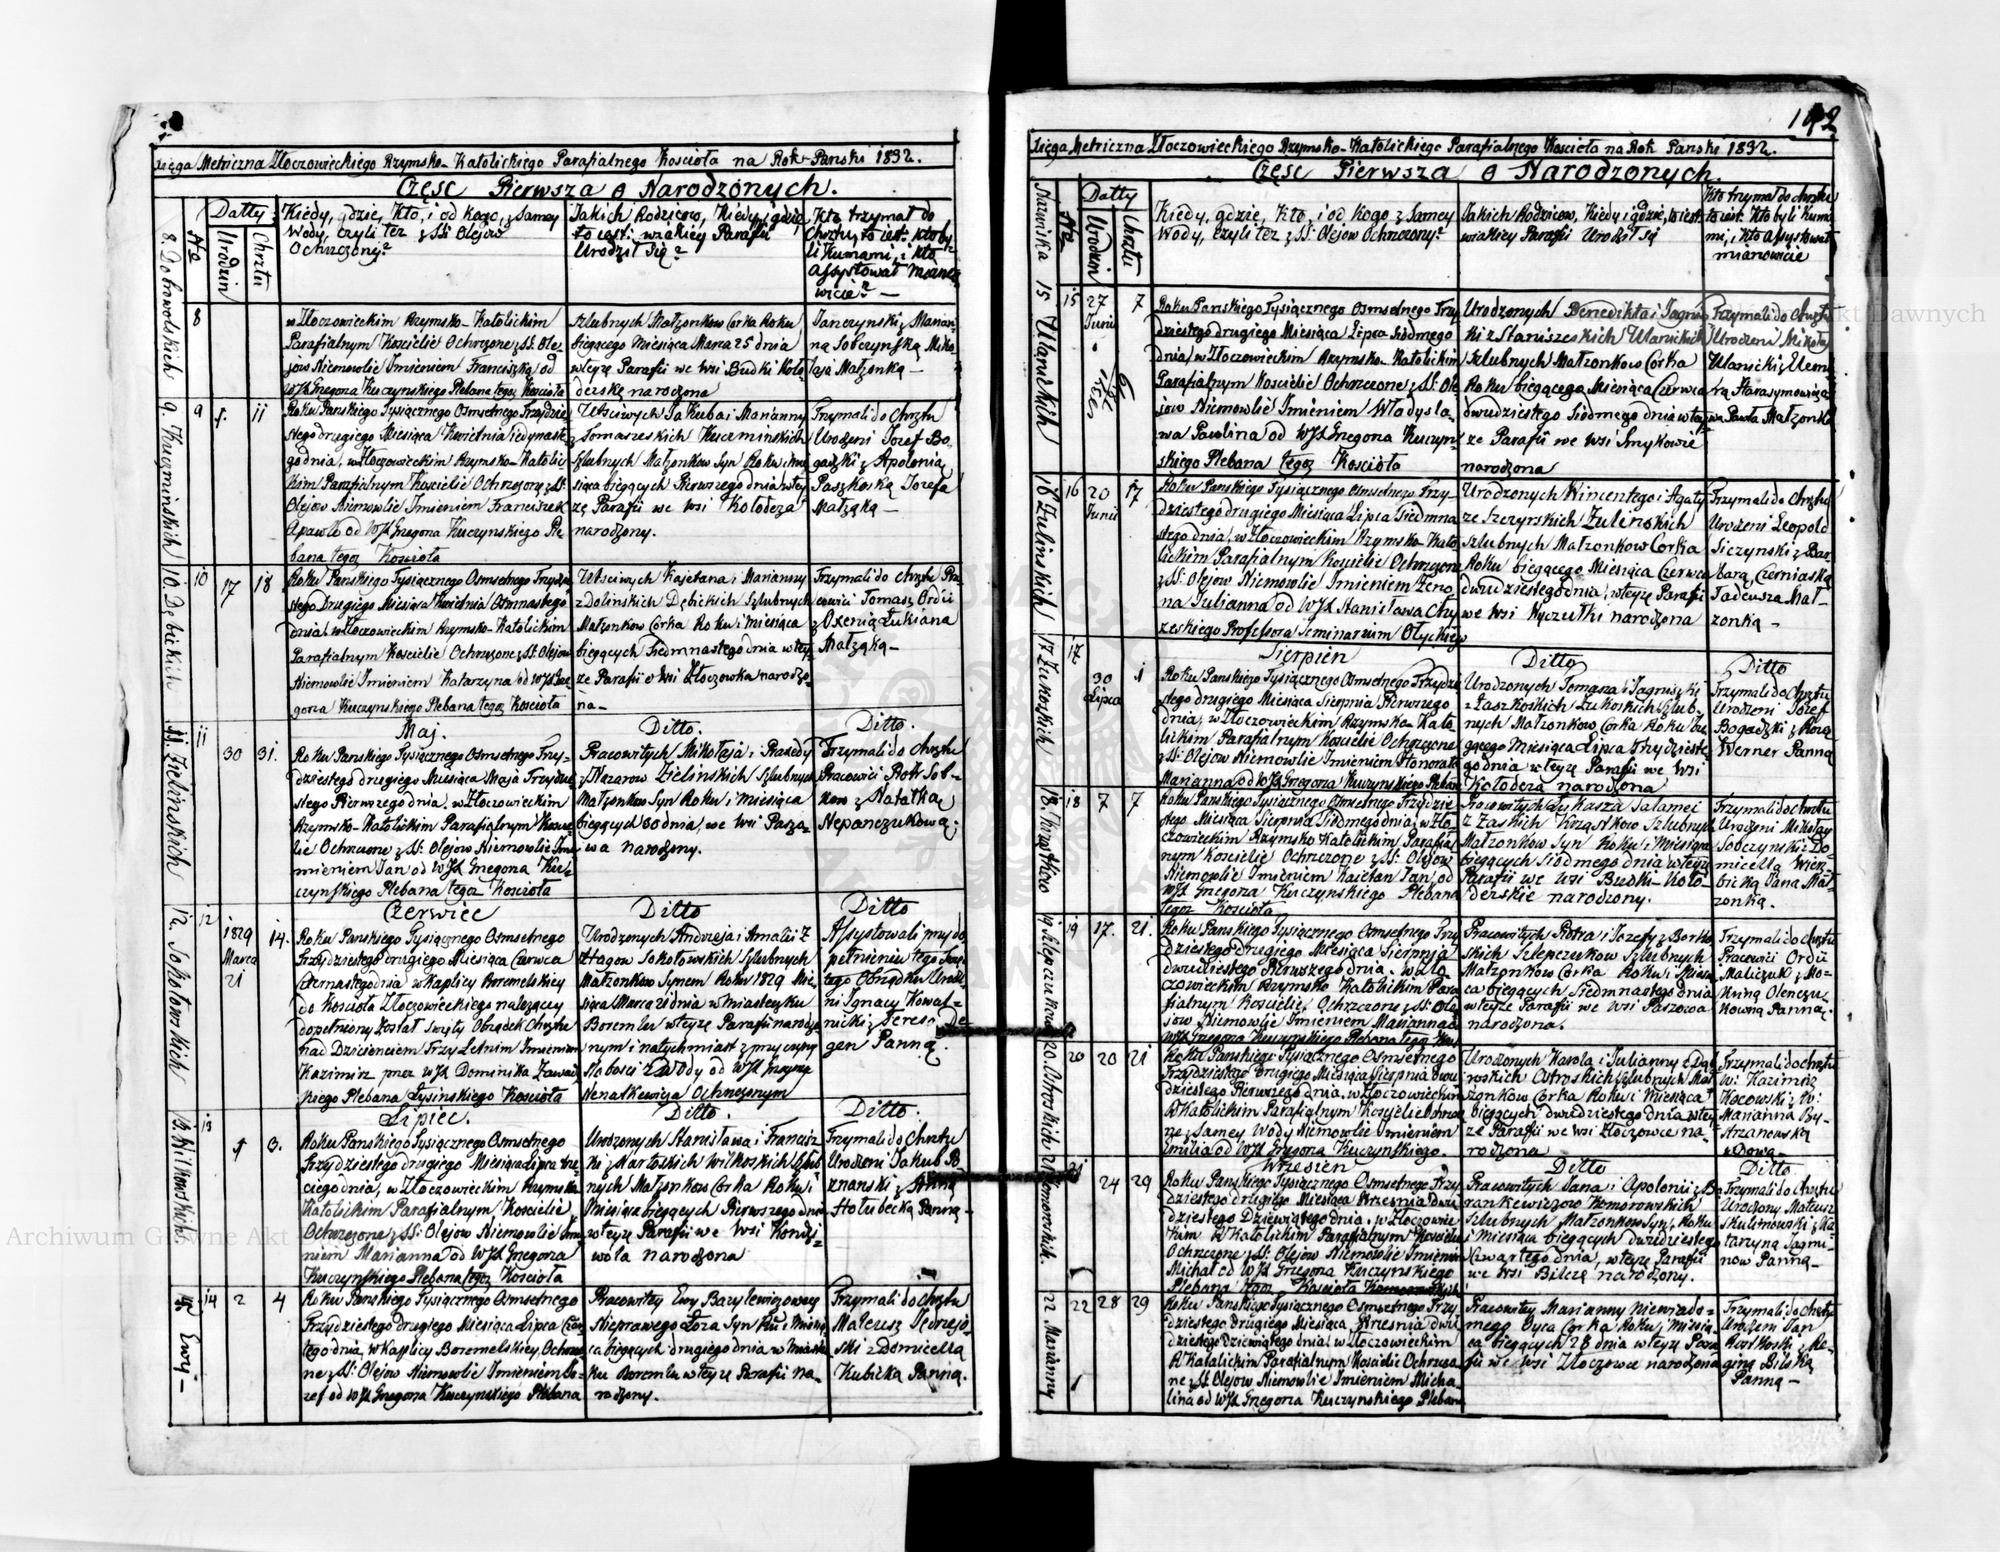 Księga Metriczna Złoczowieckiego Rzymsko-Katolickiego Parafialnego Koscioła na Rok Panski 1832.
Częsc Pierwsza o Narodzonych.
Nro
Datty
Urodzin
Chrztu
Kiedy, gdzie, Kto, i od Kogo, z Samey
Wody, czyli tez z SS: Olejow
Ochrzczony?
Jakich Rodzicow, Kiedy, i gdzie,
to iest: w iakiey Parafii
Urodził się?
Kto trzymał do
Chrztu, to iest: kto by-
li Kumami, i kto
Assystował miano-
wicie? —
8. Dobrowolskich
8
w Złoczowieckim Rzymsko-Katolickim
Parafialnym Kosciele Ochrzczone z SS: Ole-
jow Niemowlie Imieniem Franciszka, od
WJX Gregora Kuczynskiego Plebana tegoz Koscioła
Szlubnych Małzonkow Corka Roku
biegącego Miesiąca Marca 25 dnia
w teyze Parafii we Wsi Budki Koło-
derskie narodzona
Janczynski z Marian-
ną Sobczynską Miko-
łaja Małzonką —
9. Kuczminskich
9
1.
11
Roku Panskiego Tysiącznego Osmsetnego Trzydzie-
stego drugiego Miesiąca Kwietnia iedynaste-
go dnia, w Złoczowieckim Rzymsko-Katolic-
kim Parafialnym Kosciele Ochrzczony z SS:
Olejow Niemowlie Imieniem Franciszek
Apawło od WJX Gregora Kuczynskiego Ple-
bana tegoz Koscioła
Uczciwych Jakuba i Marianny
z Tomaszeskich Kuczminskich
Szlubnych Małzonkow Syn Roku i mie-
siąca biegących Pierwszego dnia w tey-
ze Parafii we Wsi Kołodeza
narodzony.
Trzymali do Chrztu
Urodzeni Jozef Bo-
gadzki z Apolonią
Paszkoską Jozefa
Małząką —
10. Dębickich
10
17
18
Roku Panskiego Tysiącznego Osmsetnego Trzydzie-
stego Drugiego Miesiąca Kwietnia Osmnastego
dnia, w Złoczowieckim Rzymsko-Katolickim
Parafialnym Kosciele Ochrzczone z SS: Olejow
Niemowlie Imieniem Katarzyna od WJX Gre-
gora Kuczynskiego Plebana tegoz Koscioła
Uczciwych Kajetana i Marianny
z Dolinskich Dębickich Szlubnych
Małzonkow Corka Roku i Miesiąca
biegących Siedmnastego dnia w tey-
ze Parafii o Wsi Złoczowka narodzo-
na —
Trzymali do Chrztu Pra-
cowici Tomasz Ordii
z Oxenią Łukiana
Małząką —
11. Zielinskich
11
Maj.
Ditto.
Ditto.
30
31.
Roku Panskiego Tysiącznego Osmsetnego Trzy-
dziestego drugiego Miesiąca Maja Trzydzie-
stego Pierwszego dnia. w Złoczowieckim
Rzymsko-Katolickim Parafialnym Kosciе-
lie Ochrzczone z SS: Olejow Niemowlie Imie-
mieniem Jan od WJX Gregora Ku-
czynskiego Plebana tegoz Koscioła
Pracowitych Mikołaja i Praxedy
z Nazarow Zielinskich Szlubnych
Małzonkow Syn Roku i miesiąca
biegących 30 dnia, we Wsi Pasza-
iwa narodzony.
Trzymali do Chrztu
Pracowici Piotr Sob-
kow z Natalką
Nepanczukową;
12. Sokołowskich
12
Czerwiec
Ditto
Ditto
1829
Marca
21
14.
Roku Panskiego Tysiącznego Osmsetnego
Trzydziestego drugiego Miesiąca Czerwca
Czternastego dnia w Kaplicy Boremelskiey
do Koscioła Złoczowieckiego nalezącey
dopełniony został swięty Obrządek Chrztu
nad Dziecieciem Trzy Letnim Imieniem
Kazimirz przez WJX Dominika Zawadz-
kiego Plebana Łysinskiego Koscioła
Urodzonych Andrzeja i Amalii z
Hagow Sokołowskich Szlubnych
Małzonkow Synem Roku 1829 Mie-
siąca Marca 21 dnia w miasteczku
Boremlu w teyze Parafii narodzo-
nym i natychmiast z przyczyny
słabosci z Wody od WJX
Nenatkewicza Ochrzczonym
Assystowali przy do-
pełnieniu tego Swię-
tego Obrządku Urodze-
ni Ignacy Kowal-
nicki z Teresą De-
gen Panną.
13. Wilkowskich
13
Lipiec.
Ditto.
Ditto.
1
3.
Roku Panskiego Tysiącznego Osmsetnego
Trzydziestego drugiego Miesiąca Lipca trze-
ciego dnia, w Złoczowieckim Rzymsko
Katolickim Parafialnym Kosciele
Ochrzczone z SS: Olejow Niemowlie Imie-
niem Marianna od WJX Gregora
Kuczynskiego Plebana tegoz Koscioła
Urodzonych Stanisława i Francisz-
ki z Martoskich Wilkoskich Szlub-
nych Małzonkow Corka Roku i
Miesiąca biegących Pierwszego dnia
w teyze Parafii we Wsi Kondy-
wola narodzona
Trzymali do Chrztu
Urodzeni Jakub Po-
znanski z Anną
Hołubecką Panną —
14 Ewy —
14
2
4
Roku Panskiego Tysiącznego Osmsetnego
Trzydziestego drugiego Miesiąca Lipca Czwar-
tego dnia, w Kaplicy Boremelskiey, Ochrzczo-
ne z SS: Olejow Niemowlie Imieniem Jo-
zef od WJX Gregora Kuczynskiego Plebana
Pracowitey Ewy Bazylewiczowey
Nieprawego Łoza Syn Roku Miesią-
ca biegących drugiego dnia w Miaste-
ku Boremlu w teyze Parafii Na-
rodzony.
Trzymali do Chrztu
Mateusz Jędrzejo-
ski z Domicellą
Kubicką Panną.
142
Księga Metriczna Złoczowieckiego Rzymsko-Katolickiego Parafialnego Koscioła na Rok Panski 1832.
Częsc Pierwsza o Narodzonych.
Nazwiska
Nro
Datty
Urodzin
Chrztu
Kiedy, gdzie, Kto, i od Kogo z Samey
Wody, czyli tez z SS: Olejow Ochrzczony?
Jakich Rodzicow, Kiedy i gdzie, to iest:
w iakiey Parafii Urodził się
Kto trzymał do chrztu
to iest: Kto byli Kuma-
mi, i Kto Assystował
mianowicie
15 Ulanickich
15
27
Junii
7
Roku Panskiego Tysiącznego Osmsetnego Trzy-
dziestego drugiego Miesiąca Lipca Siodmego
dnia, w Złoczowieckim Rzymsko-Katolickim
Parafialnym Kosciele Ochrzczone z SS: Ole-
jow Niemowlie Imieniem Władysła-
wa Paulina od WJX Gregora Kuczyn-
skiego Plebana tegoz Koscioła
Urodzonych Benedikta i Jagnisz-
ki z Staniszeskich Ulanickich
Szlubnych Małzonkow Corka
Roku biegącego Miesiąca Czerwca
dwudziestego Siodmego dnia w tey-
ze Parafii we Wsi Smykowie
narodzona
Trzymali do Chrztu
Urodzeni Mikołay
Ulanicki z Klemen-
Harasymowiczo-
wą Pawła Małzonką
16 Zulinskich
16
20
Junii
17
Roku Panskiego Tysiącznego Osmsetnego Trzy-
dziestego drugiego Miesiąca Lipca Siedmna-
stego dnia, w Złoczowieckim Rzymsko-Kato-
lickim Parafialnym Kosciele Ochrzczone
z SS: Olejow Niemowlie Imieniem Zeno-
na Julianna od WJX Stanisława Chy-
zeskiego Professora Seminarium Ołyckiego
Urodzonych Wincentego i Agaty
ze Szczyrskich Zulinskich
Szlubnych Małzonkow Corka
Roku biegącego Miesiąca Czerwca
dwudziestego dnia, w teyze Parafii
we Wsi Wyczułki narodzona
Trzymali do Chrztu
Urodzeni Leopold
Siczynski z Bar-
barą Czerniaską
Tadeusza Mał-
zonką —
17 Zukoskich
17
Sierpien
Ditto
Ditto
30
Lipca
1
Roku Panskiego Tysiącznego Osmsetnego Trzydzie-
stego drugiego Miesiąca Sierpnia Pierwszego
dnia, w Złoczowieckim Rzymsko-Kato-
lickim Parafialnym Kosciele Ochrzczone
z SS: Olejow Niemowlie Imieniem Honorata
Marianna od WJX Gregora Kuczynskiego Plebana
Urodzonych Tomasza i Jagniszki
z Łaszkoskich Zukoskich Szlub-
nych Małzonkow Corka Roku bie-
gącego Miesiąca Lipca Trzydzieste-
go dnia w teyze Parafii we Wsi
Kołodeza narodzona
Trzymali do Chrztu
Urodzeni Jozef
Bogadzki z Rozą
Werner Panną
18
7
7
Roku Panskiego Tysiącznego Osmsetnego Trzydzie-
stego Miesiąca Sierpnia Siodmego dnia, w Zło-
czowieckim Rzymsko Katolickim Parafial-
nym Kosciele Ochrzczone z SS: Olejow
Niemowlie Imieniem Kaietan Jan, od
WJX Gregora Kuczynskiego Plebana
tegoz Koscioła
Pracowitych Łukasza Salamei
z Zaskich Krząstkow Szlubnych
Małzonkow Syn Roku i Miesiąca
biegących Siodmego dnia w teyze
Parafii we Wsi Budki-Koło-
derskie narodzony.
Trzymali do Chrztu
Urodzeni Mikołay
Sobczynski z Do-
micellą Wierz-
bicką Jana Mał-
zonką.
19
17.
21.
Roku Panskiego Tysiącznego Osmsetnego Trzy-
dziestego Drugiego Miesiąca Sierpnia
dwudziestego Pierwszego dnia. w Zło-
czowieckim Rzymsko Katolickim Para-
fialnym Kosciele, Ochrzczone z SS: Ole-
jow Niemowlie Imieniem Marianna od
WJX Gregora Kuczynskiego Plebana tegoz Kos:
Pracowitych Piotra i Jozefy z Borko-
skich Szlepczukow Szlubnych
Małzonkow Corka Roku i Miesią-
ca biegących Siedmnastego dnia
w teyze Parafii we Wsi Paszowa
narodzona.
Trzymali do Chrztu
Pracowici Ordii
Maliczuk z Ho-
Olenczu-
kowną Panną.
20. Ostroskich
20
20
21
Roku Panskiego Tysiącznego Osmsetnego
Trzydziestego drugiego Miesiąca Sierpnia Dwu-
dziestego Pierwszego dnia, w Złoczowieckim
R Katolickim Parafialnym Kosciele Ochrzczo-
ne z Samey Wody Niemowlie Imieniem
Emilia od WJX Gregora Kuczynskiego.
Urodzonych Karola i Julianny z Dąb-
rowskich Ostroskich Szlubnych Mał-
zonkow Corka Roku i Miesiąca
biegących dwudziestego dnia w tey-
ze Parafii we Wsi Złoczowce na-
rodzona
Trzymali do Chrztu
W: Kazimirz
Kocowski z W:
Marianną By-
strzanowską
Wdową —
21. Komorowskich.
21
Wrzesien
Ditto
Ditto
24
29
Roku Panskiego Tysiącznego Osmsetnego Trzy-
dziestego drugiego Miesiąca Wrzesnia Dwu-
dziestego Dziewiątego dnia, w Złoczowiec-
kim R Katolickim Parafialnym Kosciele
Ochrzczone z SS: Olejow Niemowlie Imieniem
Michał od WJX Gregora Kuczynskiego
Plebana tegoz Koscioła
Pracowitych Jana i Apolonii z Ba-
rankiewiczow Komorowskich
Szlubnych Małzonkow Syn, Roku
i Miesiąca biegących dwudziestego
Czwartego dnia, w teyze Parafii
we Wsi Bilczę narodzony.
Trzymali do Chrztu
Urodzony Mateusz
Skulimowski z Ka-
tarzyną Jagmi-
now Panną —
22 Marianny
22
28
29
Roku Panskiego Tysiącznego Osmsetnego Trzy-
dziestego drugiego Miesiąca Wrzesnia dwu-
dziestego dziewiątego dnia. w Złoczowieckim
R Katolickim Parafialnym Kosciele Ochrzczo-
ne z SS Olejow Niemowlie Imieniem Micha-
lina od WJX Gregora Kuczynskiego Plebana
Pracowitey Marianny niewiado-
mego Oyca Corka Roku, Miesią-
ca biegących 28 dnia w teyze Para-
fii we Wsi Złoczowce narodzona
Trzymali do Chrztu
Urodzeni Jan
Rostkoski z Re-
giną Bilską
Panną —
Archiwum Główne Akt Dawnych